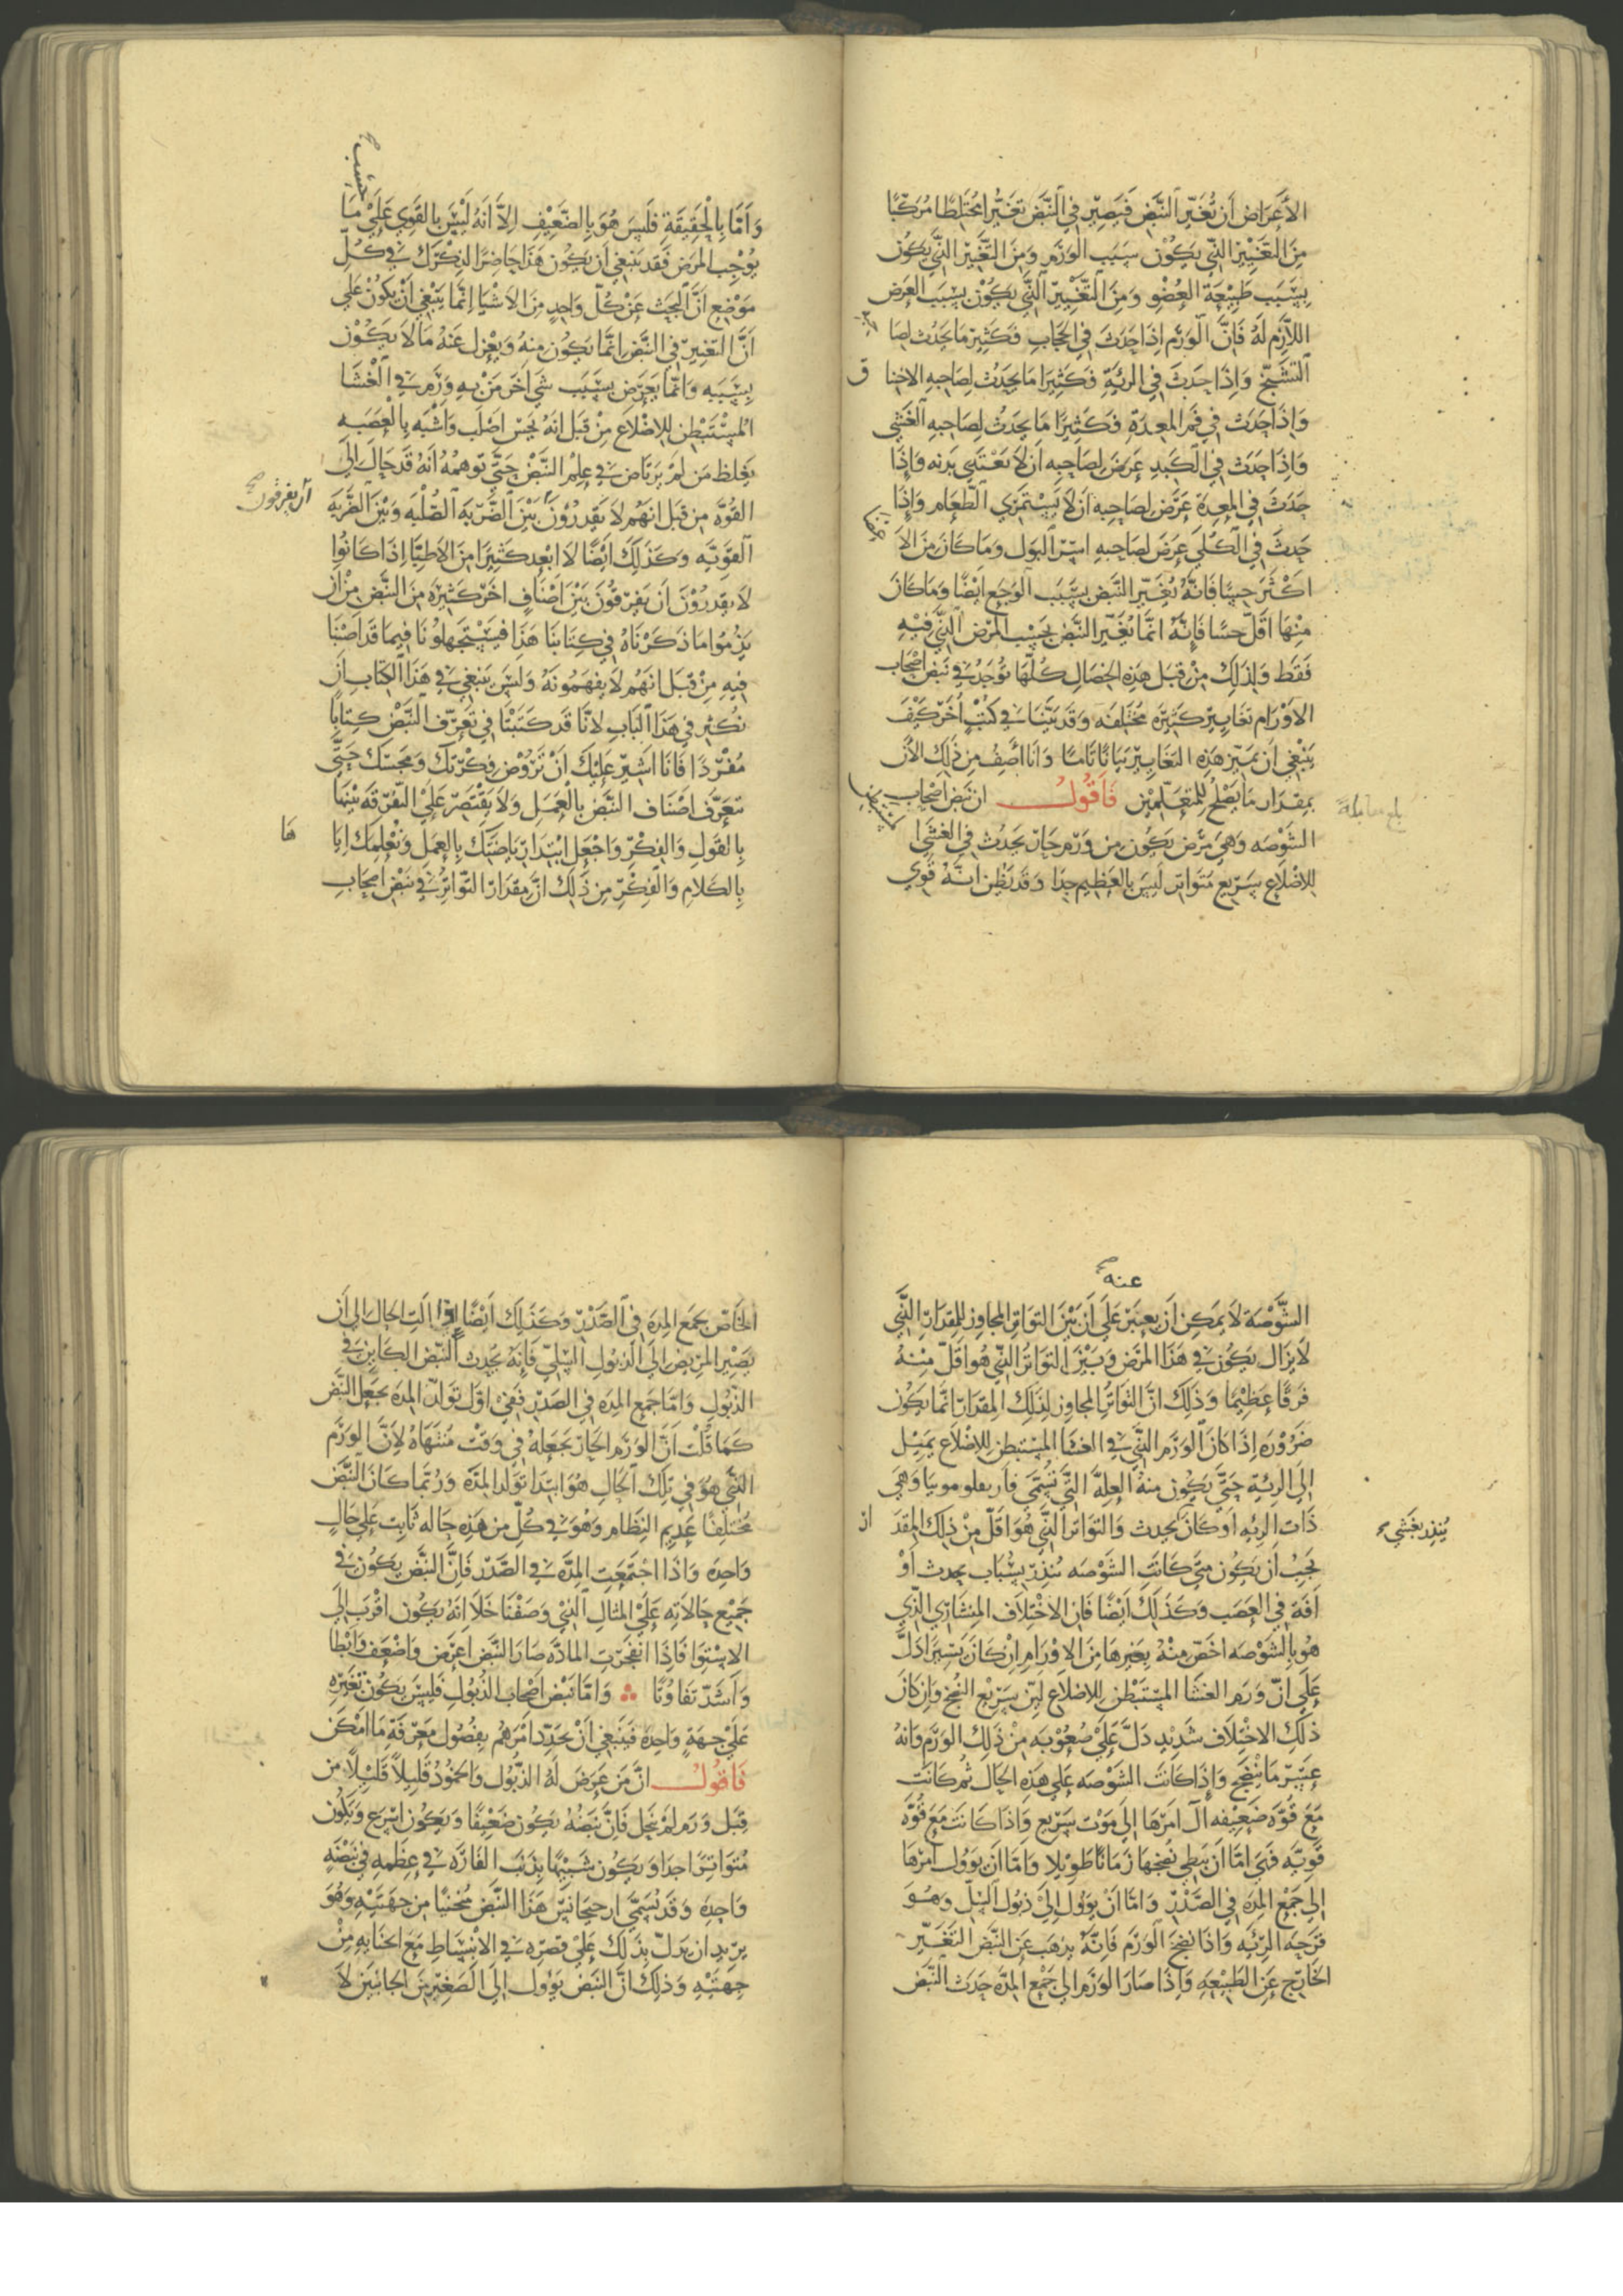 الأَعرَاض اَن تُغَيّر النَّبَض فَيَصِيّر في النَّبَض تغَيُّرا مُختَلِطًا مُركبًا
مِنَ التَغيِير الذّي يَكُوْن سَبَب الوَرَم وَمِنَ التّغيِير الذَّي يَكُوْن
بِسَبَب طَبِيْعَة العُضْو وَمِنَ التّغيِير الذَّي يَكَوْن بِسَبَب العَرَض
اللَّازِم لَهُ فَاِنَّ الوَرَم اِذَا حَدَثَ في الحِجَابِ فكَثِيرًا مَا يَحدُث لِصَا
التشَنّج وَاِذَا حَدَثَ في الرئَةِ فَكَثِيرًا مَا يَحَدُث لصَاحِبهِ الاختا ق
وَاِذَا حَدَثَ في فَمَ المعِدَةِ فَكَثِيرًا مَا يحَدُث لِصَاحِبهِ الغَشْي
وَاِذَا حَدَثَ في الكَبِدِ عَرَضَ لِصَاحِبه اَن لاَ يَغتَذي بَدنه وَاِذَا
حَدَثَ في المعِدَة عَرَضَ لِصَاحِبهِ اَن لاَ يَسْتَمري الطَّعَام وَاِذَا
حَدثَ في الكُلَى عَرَضَ لصَاحبهِ اسْر البَول وَمَا كَانَ مِنَ الاَ
اكثَر حِسًّا فَانَّهُ يُغَيّر النَّبَض بِسَبَبِ الوَجَع ايْضًا وَمَا كَانَ
مِنهَا اقلّ حِسًّا فَاِنَّهُ انمَّا يُغَيّر النَّبَض بحَسْب المرَض الذَّي فِيهِ
فَقَط وَلِذَلِكَ مِنْ قبَل هَذِه الخصَالِ كُلّهَا يُوجَدُ في نَبض اصحَاب
الاَوْرَام تغَايِير كَثِيْرَة مُختَلِفَه وَقَد بَيَّنَا في كتُبٍ اُخَر كَيْفَ
يَنبْغي اَن نميّز هَذِهِ التغَايِيْر بَيَانًا تَامًا وَانَا اَصِفُ مِن ذَلِكَ الاَن
بمقدَار مَا يَصْلحُ للمتَعَلّمِيْن فَاَقُولُ ان نَبَض اصحَاب
الشَوْصَه وَهيَ مَرَض يَكُون مِن وَرَم حَارّ يحَدُث في الغشَا
للاضْلاَعِ سَرِيع مَتوَاتر لَيْسَ بالعَظِيم جدَا وَقَد يَظُن انَّهُ قَوي
وَاَمَّا بِالحَقِيقَةِ فلَيسَ هُوَ بِالضّعَيْف اِلاَّ اَنَّهُ لَيْسَ بالقَوي عَلَي مَا
يُوْجِب المرَض فَقَد يَنبَغي اَن يَكُوْن هَذَا حَاضِرًا لذكْرك في كُلّ
مَوْضِع اَنَّ البَحث عَنْ كُلّ وَاحِدٍ مِنَ الاَشْيَا اِنّمَا يَنبَغي اَنْ يَكُون عَلي
انَّ التغيِير في النَّبْض انمَّا يَكوُن مِنهُ وَيُعْزل عَنْهُ مَا لاَ يَكُوْن
بِسَبَبِه وَانمَّا يَعرَض بِسَبَب شَي اخَر مَنْ بهِ وَرَم في الغشَا
المسْتَبْطن للاضْلاَع مِنْ قَبَل انهُ يحَسّ اصْلَب وَاشْبَه بِالعَصَبه
يَغِلط مَن لَمْ يَرتَاض في عِلِمْ النَّبَضْ حَتَّى تَوهمهُ اَنهُ قَدَ حَال الَى
القُوّة مِن قَبَل انهُم لاَ يَقْدِرُوْنَ بَيْنَ الضَّرْبَة الصُّلبَه وَبَيْنَ الضَّربَه ان يفرقون
القَوِيَه وَكَذَلِكَ ايْضًا لَا ابْعِد كَثِيرًا مِنَ الاَطِبَّا اِذَا كَانُوا
لاَ يقدِرُوْنَ اَن يَفرّقوُنَ بَيْنَ اَصْنَافٍ اخَرّ كَثِيْرَه مِنَ النَّبْض مِن اَن
يَذِمُوا مَا ذكَرْنَاهُ في كِتَابنَا هَذَا فيَسْتَجَهِلوُنَا فِيمَا قَد اَصَبْنَا
فِيهِ مِنْ قَبَل انهُم لاَ يَفهَمُونَهُ وَليْسَ يَنبَغي في هَذَا الكِتَابِ اَن
نُكثِر في هَذَا البَابِ لانَّا قَد كَتَبْنَا في تَعَرّف النَّبَضْ كِتابًا
مُفْردًا فَانَا اُشِيْر عَلَيْكَ اَنْ تَرُوْض فِكْرتَكَ وَمَجسّتك حَتَّى
تتعَرَّف اصْنَاف النَّبَض بِالعمَلِ وَلاَ تَقْتَصِر عَلَيْ التّفرقَه بَيْنَهَا
بِالقَولِ وَالفِكْرِ وَاجْعَل ابْتدا رِيَاضَتكَ بِالعمَلِ وَتَعْلِمك اِيَا هَا
بِالكَلَامِ وَالفِكْرِ مِن ذَلِكَ انَّ مِقدَار التّوَاتِرُ في نَبْض اصحَابِ
عنه
الشَّوْصَةَ لاَ يمَكِن اَن يعَبِر عَلَى اَن بَيْنَ التوَاتِر المجَاوِز للمِقدَار الذَّي
لاَ يزَال يكوُن في هَذَا المَرَض وَبَيْنَ التوَاتُر الذّي هُوَ اقَلّ مِنْهُ
فرَقًا عظِيْمًا وَذَلِكَ انَّ التوَاتُر المجَاوِز لِذَلِكَ المِقدَار انمَّا يَكُون
ضَرُوْرَه اِذَا كَانَ الوَرَم الذَّي في الغشَا المسْتبطِن للاضْلاَع يميْل
الَى الرئةِ حَتَّى يَكُون مِنهُ العِلةَ التَّي تُسَمَّي فَاربفلومونيا وَهيَ
ذَات الرئهِ اَو كانَ يحدث وَالتوَاتر الذَّي هُوَ اقَلّ مِنْ ذلِكَ المِقدَ ار
يُنذر بغشي
يَجبُ اَن يَكُون مَتى كَانَت الشَوْصَه تُنذِر بسُبَاب يحدث اَوْ
اَفَة في العَصَب وَكَذَلِكَ ايْضًا فَان الاخْتِلَاف المِنشَاري الذّي
هُو بِالشَوْصَه اخَصّ منْهُ بِغيرهَا مِنَ الاوْرَامِ اِنْ كَانَ يَسِيرًا دَلَّ
عَلَي انّ وَرَم الغشَا المسْتَبْطن للاضلاَع لَيّن سَرِيع النُضج وَاِن كَانَ
ذلِكَ الاختلَاف شَدِيْد دَلَّ عَلَيْ صُعُوْبه مِنْ ذلِكَ الوَرَم وَانهُ
عَسِر مَا يَنْضَج وَاِذَا كَانَت الشَوْصَه عَلَي هَذِه الحَال ثُم كَانَت
مَعَ قوَّه ضَعِيْفه آلَ امَرهَا الَى مَوْت سَرِيْع وَاذَا كَانَت مَعَ قُوَّه
قَوِيَّه فَهيَ امَّا اَن يُبطي نُضجهَا زَمَانًا طَوِيلا وَامَّا اَن يَؤُول امرهَا
الَى جَمْع المِدَه في الصَّدْر وَامَّا اَنْ يَؤُول الَى ذبُول السّلّ وَهُوَ
قرحَه الرئه وَاذَا نضجَ الوَرَم فَاِنَّهُ يذهَب عَن النَّبَض التَغَيّر
الخَارِج عَن الطَبِيْعَه وَاِذَا صَارَ الوَرَم الي جَمْع المدَّه حَدَث النَّبَض
الخَاصّ بجَمع المِدَه في الصَّدْر وَكَذَلِكَ اَيْضًا اِذَا الَت الحَال الي اَن
يَصِيْر المَرِيض الي الذبُولِ السّلي فَاِنَه يُحدِث النَّبْض الكَايِن في
الذّبُولِ وَامَّا جَمع المدَه في الصَدْر فَفي اوّل تَولّد المِدَه يجعَل النَّبَض
كمَا قُلْت انَّ الوَرَم الحَار يَجعَلهُ في وَقتْ مُنتهَاهُ لاَنَّ الوَرَم
الذَّي هُوَ في تِلكَ الحَالِ هُوَ ابتدَا تَوَلد المدَّه وَرُبّمَا كَانَ النَّبَض
مُختَلِفًا عَدِيم النِظَام وَهُوَ في كُلّ مِن هَذِه حَاله ثَابِت عَلَي حَالٍ
وَاحِدَه وَاذَا اجْتَمَعَت المِدَّه في الصَّدْر فَاِنَّ النَّبَض يَكُوْن في
جَمِيْع حَالاَته عَلَيْ المثالِ الذّي وَصَفْنَا خَلَا انَهُ يَكُون اقْرَب الَى
الاسْتِوَا فَاِذَا انفَجَرت المادَّه صَارَ النَّبَض اعرَض وَاضْعَف وَابْطا
وَاَشَدّ تفَاوُتًا وَامَّا نَبْض اصْحَاب الذُبُول فَليْسَ يَكُون تَغَيره
عَليْ جِهَةٍ وَاحِدَه فَيَنبَغي اَنْ نحَدّد امَرهُم بِفُصُول مَعَرفَة مَا امْكَن
فَاقُولُ انَّ مَن عَرَضَ لَهُ الذّبُول وَالخَمُوُدْ قَلِيْلاً قَلِيْلاً من
قِبَل وَرَم لَمْ يَنحَل فَاِنَّ نَبَضَهُ يَكُون ضَعَيْفًا وَيَكُون اسْرَع وَيَكُون
مُتَوَاتِرًا جدَا وَيَكُون شَبِيْهًا بِذَنَب الفَارَه في عِظَمهِ في نَبْضَه
وَاحِدَه وَقَد يُسَمِّي ارخيجانِيْس هَذَا النَّبض مُنحَنيًا مِن جِهَتَيْهِ وَهُوَ
يرِيد اَن يدَلّ بِذَلِكَ عَلَيْ قِصَره في الانبْسَاطِ مَعَ انحنَايهِ مِنْ
جِهَتَيْهِ وَذلِكَ انَّ النَبَض يَؤُول الَى الصَغِيْر مِنَ الجانبَيْن لاَ